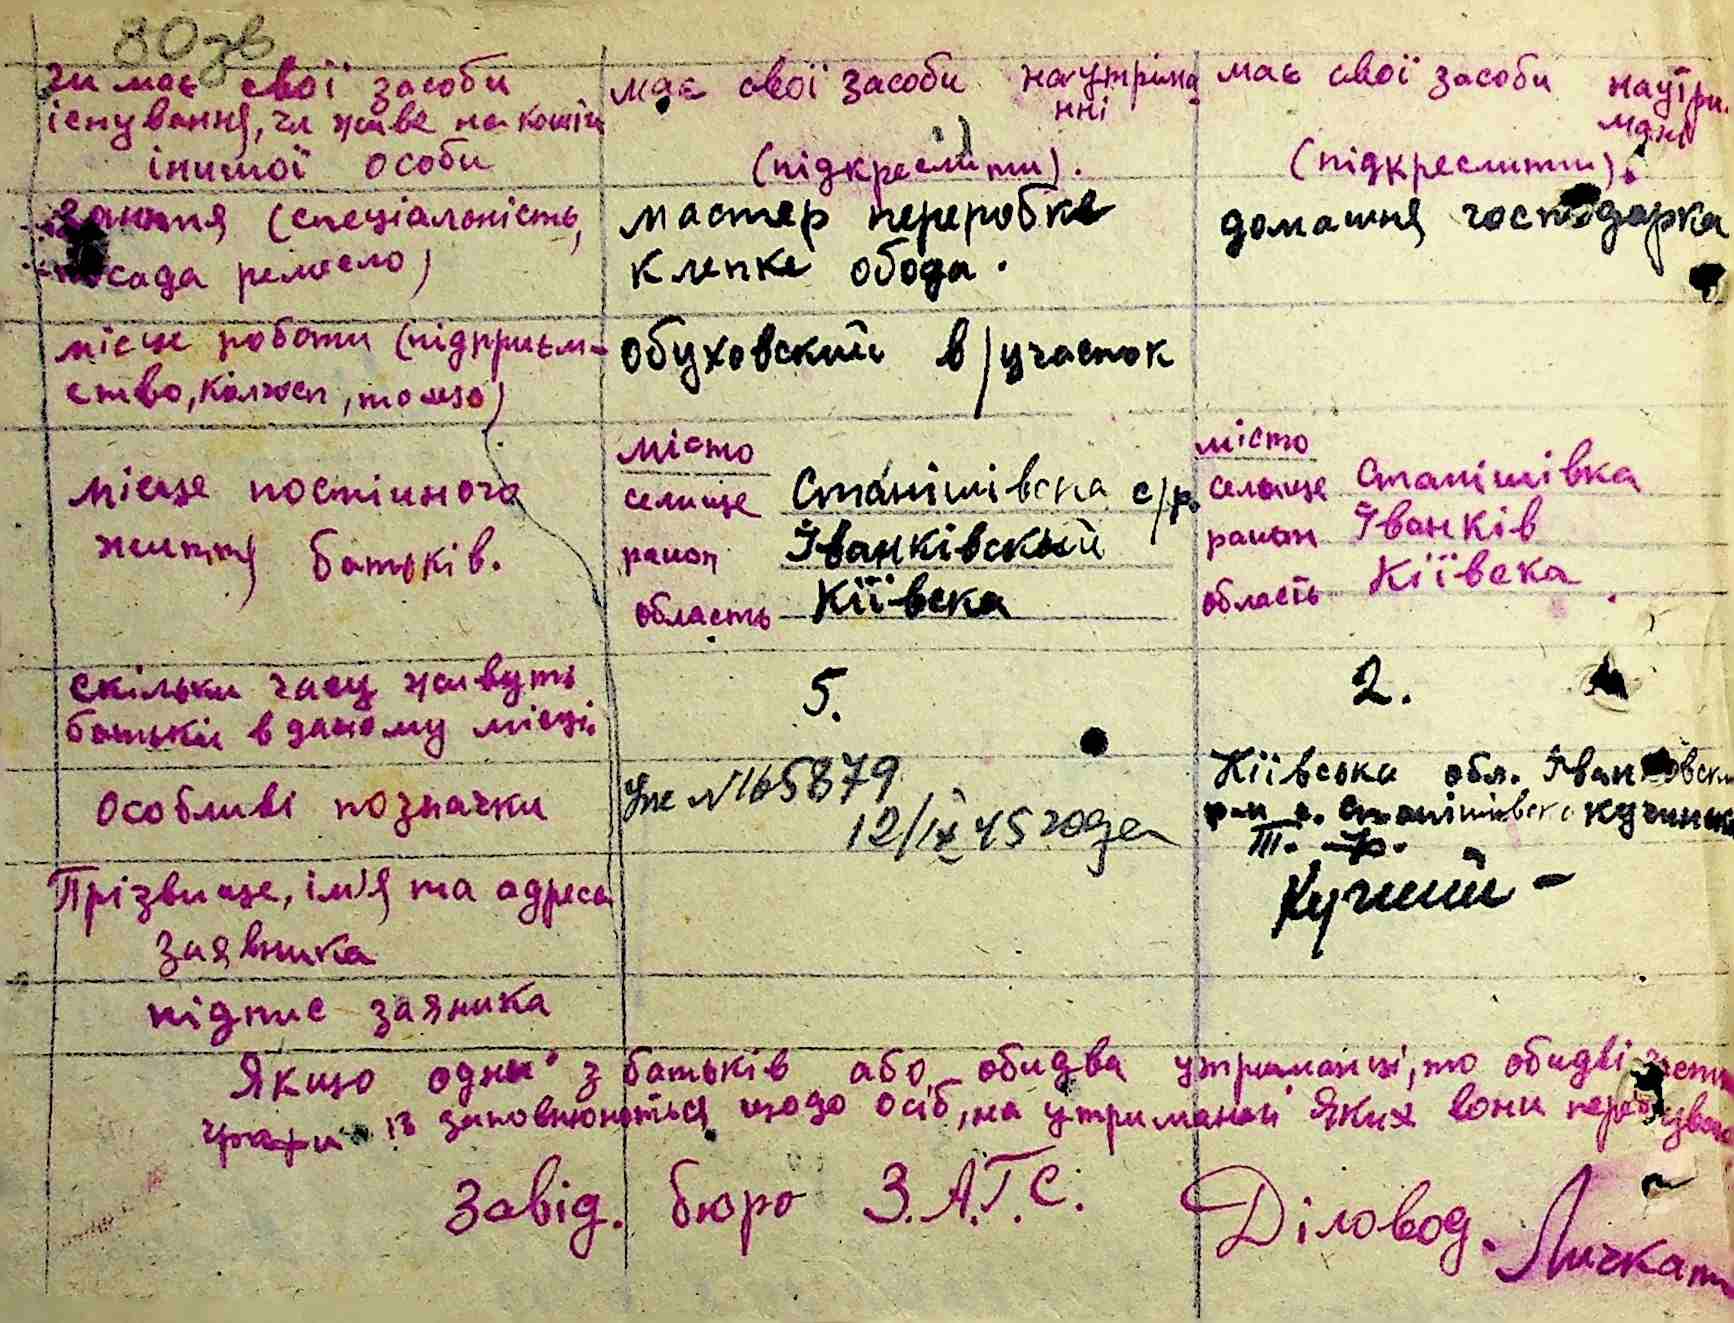 80зв
чи має свої засоби
існування, чи живе на кошти
іншої особи
має свої засоби на утрима
нні
(підкреслити).
має свої засоби на утри
мані
(підкреслити).
заняття (спеціальність,
посада ремесло)
мастер переробке
клепке обода.
домашня господарка
місце роботи (підприєм-
ство, колгосп, тощо)
обуховский в/участок
місце постійного
життя батьків.
місто
селище Станішівска с/р.
район Іванківский
область Кіївска
місто
селище Станішівка
район Іванків
область Кіївска
скільки часу живуть
батьки в даному місці
5.
2.
Особливі позначки
№165879
12/IX 45 года
Кіївська обл. Іванковск
р-н с. Станішівска
Т. Ф.
Прізвище, ім'я та адреса
заявника
підпис заяника
Якщо один з батьків або обидва утриманці, то обидві
графи заповнюються щодо осіб, на утриманні яких вони
Завід. бюро З.А.Г.С. Діловод.